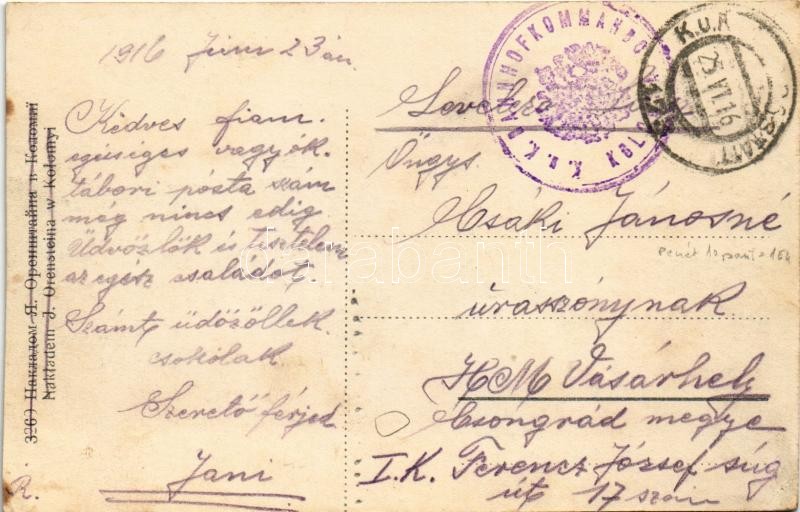 1916 Juni 23 án
Kedves fiam
egésiges vagyok
tábori pósta szám
még nincs edig
Üdvözlök és tisztelem
az egész családot
Számt üdözöllek
csokolak
Szerető férjed
Jani
R.
3260 Накладом Я. Оренштайна в Коломиї
Nakładem J. Orensteina w Kołomyi
K. u. K. BAHNHOFKOMMANDO
K.u.K.
25 VI 16
Öngys
Csáki Jánosné
úraszónynak
HM Vásárhely
Csongrád megye
I.K. Ferencz József súg
út 17 szám
darabanth